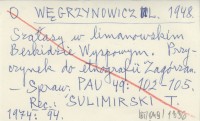 O WĘGRZYNOWICZ L. 1948.
Szałasy w limanowskiem
Beskidzie Wyspowym. Przy-
czynek do etnografii Zagórzan.
— Spraw. PAU 49: 102-105.
Rec.: SULIMIRSKI T.
1974: 94.